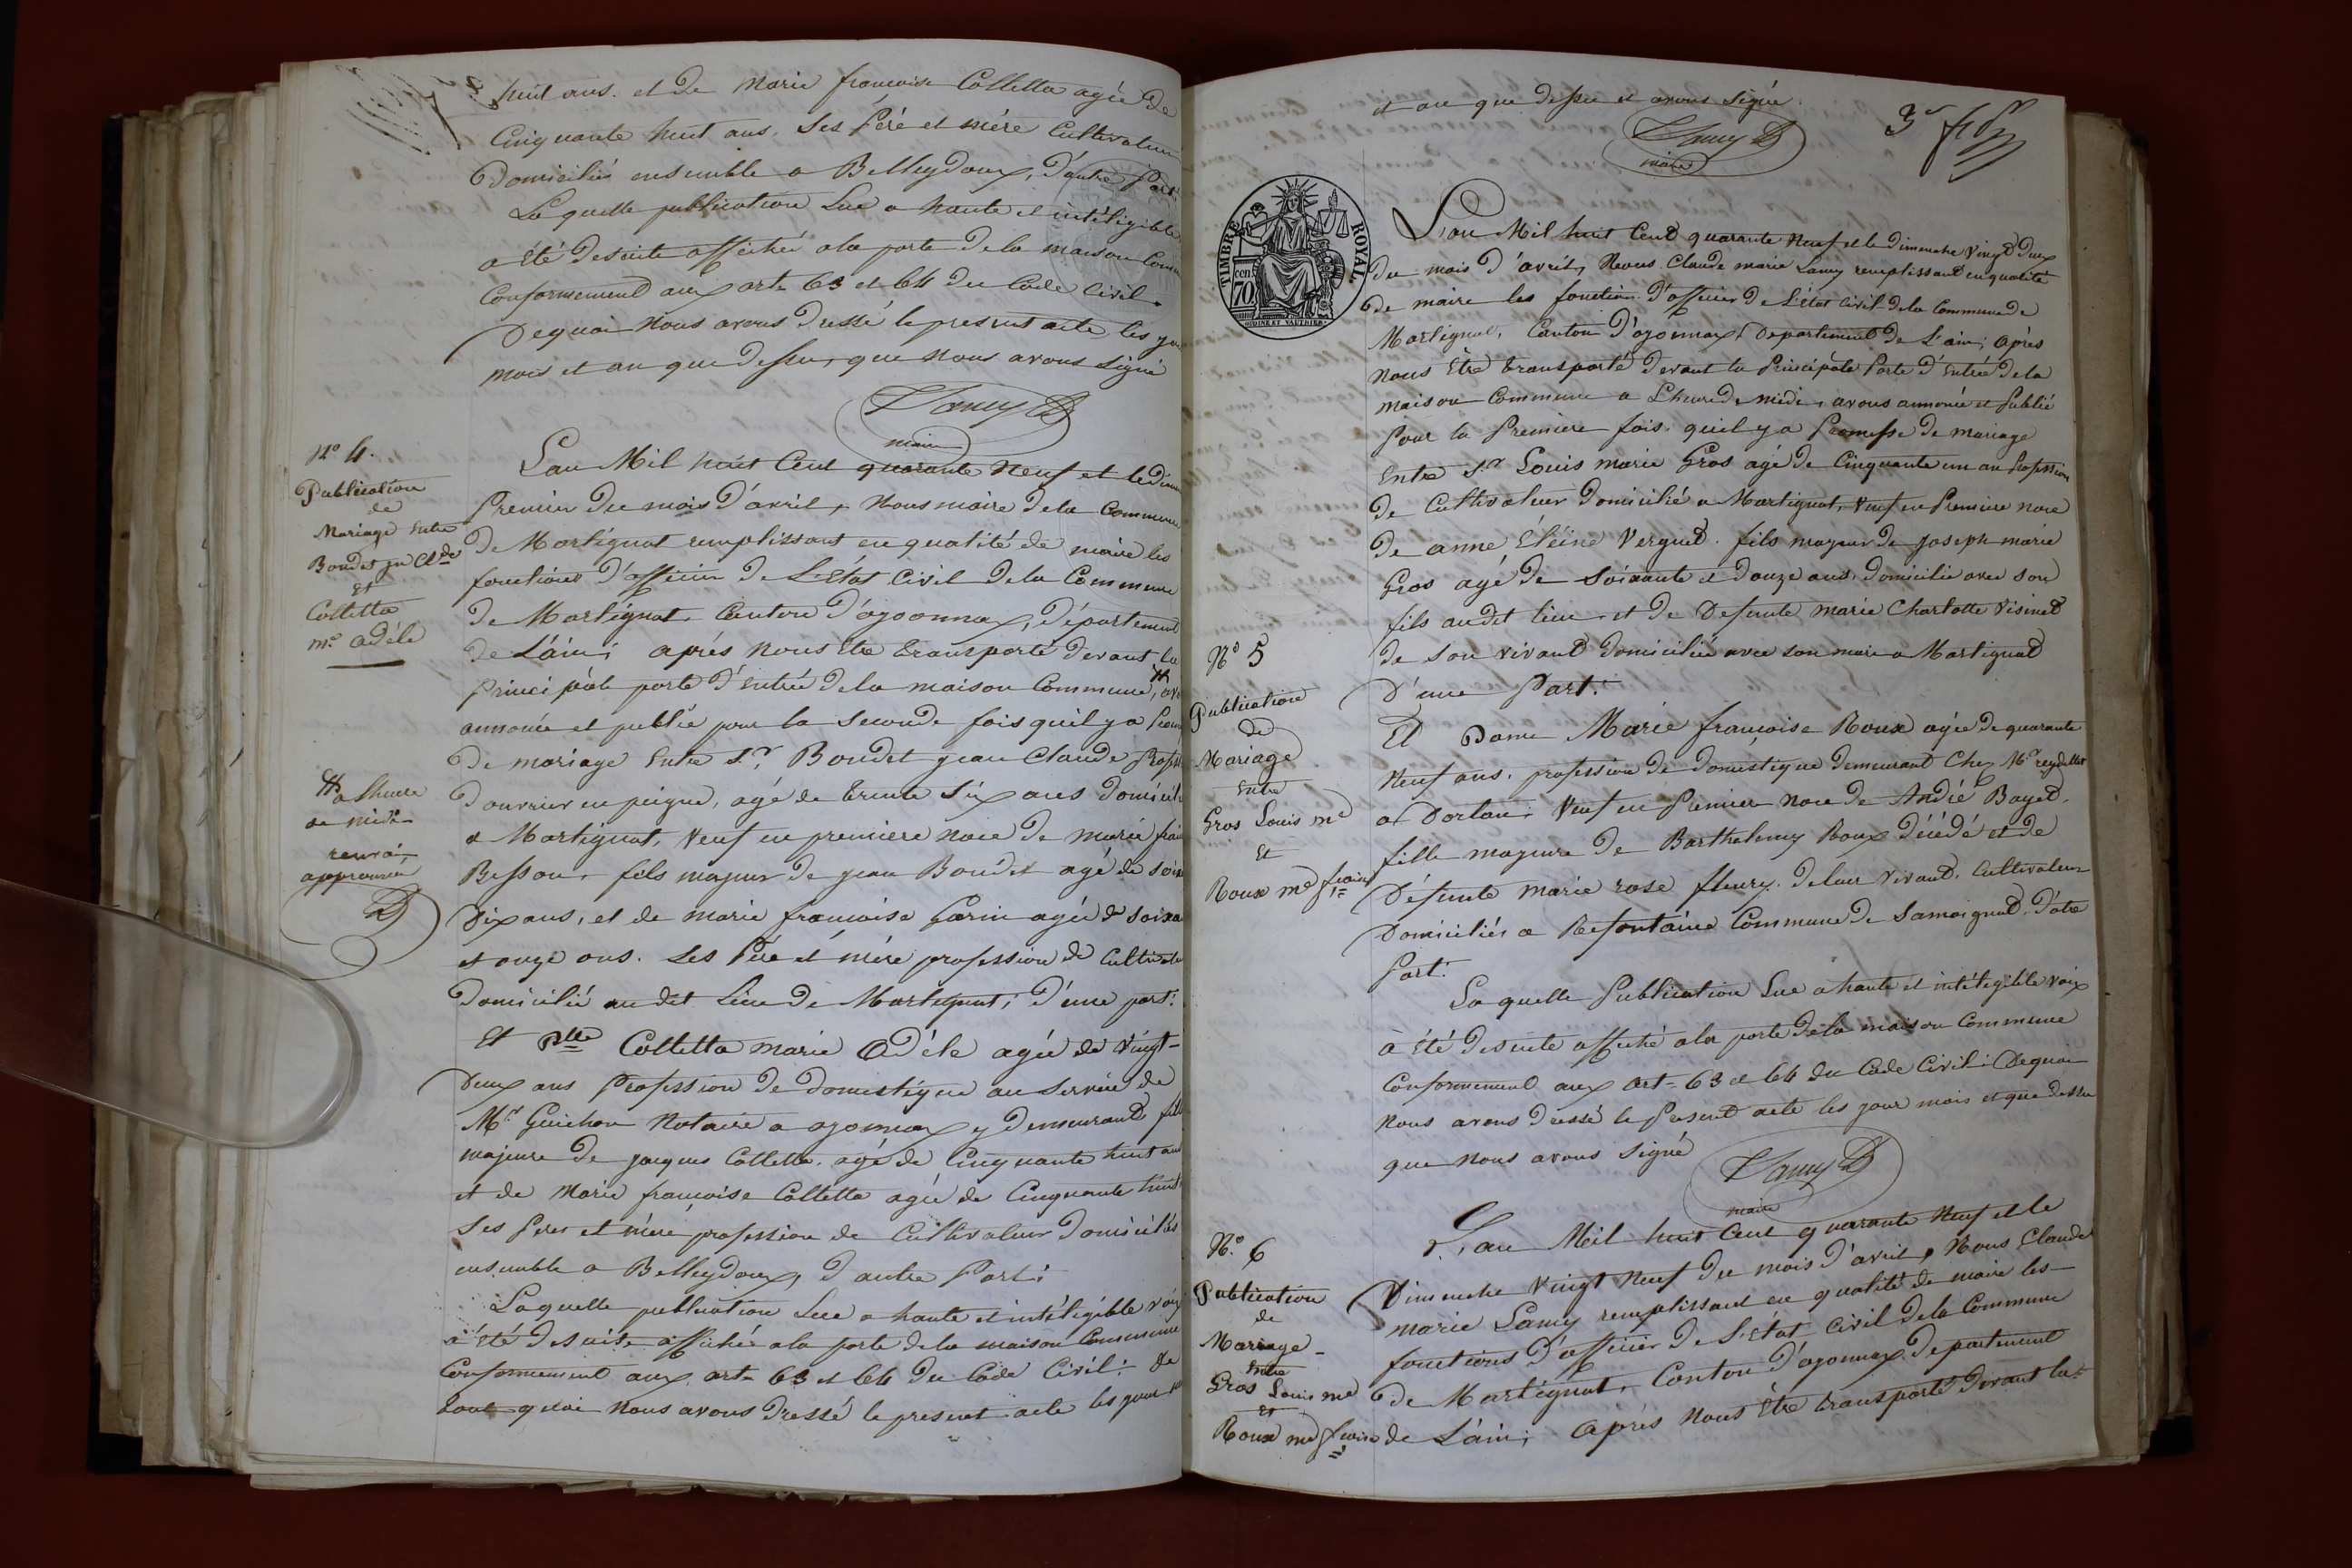 huit ans. et de Marie françoise Colletta agée de
Cinquante huit ans. Ses Péré et mére Cultivateur
Domiciliés ensemble a Belleydoux, d'autre Part.
La quelle publication Lue a haute et intéligible
a été desuite affichée ala porte de la maison Com
Conformement aux art. 63 et 64 du Code Civil.
Dequoi Nous avons Dressé le present acte, les jou
mois et an que dessus, que nous avons signé
Lamy
maire
N° 4.
Publication
de
Mariage Entre
Boudet jn Clde
Et
Colletta
me. adéle
L'an Mil huit Cent quarante Neuf et le dim
Premier du mois d'avril, Nous maire dela Commune
de Martignat remplissant en qualité de maire les
fonctions d'officier de L'Etat Civil dela Commune
de Martignat. Canton d'ojoonnax, département
de L'ain; aprés nous être transporté devant la
Principale porte d'entrée dela maison Commune, # avo
annoncé et publié pour la Seconde fois qu'il y a Prom
de mariage Entre Sr. Boudet jean Claude Profess
d'ouvrier en peigne, agé de trente Six ans domicili
a Martignat, Veuf en premiere noce de marie fran
Besson, fils majeur de jean Boudet agé de soix
Dix ans, et de marie françoise Garin agée de soixa
et onze ans. Ses Pére et mére profession de Cultivate
Domicilié au dit Lieu de Martignat, d'une part:
# a Lheure
de midi
renvoi
approuvé
Et Dlle Colletta marie Adéle agée de Vingt-
Deux ans Profession de domestique au Service de
Mr. Guichon Notaire a ojonnax y demeurant fille
majeure de jacques Colletta. agé de Cinquante huit ans
et de Marie françoise Colletta agée de Cinquante huit
Ses Peres et mére profession de Cultivateur domiciliés
ensemble a Belleydoux, d'autre Part:
Laquelle publication Lue a haute et intéligible voix
a été desuite affichée ala porte dela maison Commune
Conformement aux art. 63 et 64 du Code Civil: de
tout quoi Nous avons Dressé le present acte les jour
et an que dessus et avons signé.
Lamy
maire
3e
TIMBRE ROYAL
cen 70
L'an Mil huit Cent quarante Neuf et le dimenche Vingt Deux
du mois d'avril, Nous Claude marie Lamy remplissant en qualité
de maire les fonction d'officier de L'état Civil dela Commune de
Martignat, Canton D'ojonnax, Departement de L'ain; aprés
nous Etre transporté devant la Principale Porte d'entrée dela
maison Commune a L'heure de midi, avons annoncé et Publié
Pour la Premiere fois. qu'il y a Promesse de mariage
Entre Sr. Louis marie Gros agé de Cinquante un an Profession
de Cultivateur Domicilié a Martignat, Veuf en Premiere noce
de anne Éléine Verguet. fils majeur de joseph marie
Gros agé de soixante et Douze ans, domicilié avec son
fils au dit lieu, et de Defunte marie Charlotte Visinet
de son vivant domiciliée avec son mari a Martignat
D'une Part:
N° 5
Publication
de
Mariage
Entre
Gros Louis me
Et
Roux me fcoise
Et Dame Marie françoise Roux agée de quarante
Neuf ans. profession de domestique demeurant Chez Mr reydellet
a Dortan; Veuf en Premiere Noce de André Bayet.
fille majeure de Barthelemy Roux décédé et de
Défunte marie rose fleury. deleur vivant, Cultivateur
Domiciliés a Resfontaine Commune de Samoignat. D'otre
Part:
La quelle Publication Lue a haute et intéligible voix
à été desuite affiché ala porte dela maison Commune
Conformement aux art. 63 et 64 du Code Civil: Dequoi
Nous avons dressé le Present acte les jour mois et que dessu
que Nous avons signé
Lamy
maire
N° 6
Publication
de
Mariage
Entre
Gros Louis me
Et
Roux me fcoise
L'an Mil huit Cent quarante Neuf et le
Dimenche Vingt Neuf du mois d'avril, Nous Claude
marie Lamy remplissant en qualité de maire les
fonctions d'officier de L'Etat Civil dela Commune
de Martignat, Canton d'ojonnax, Departement
de L'ain; aprés nous Etre transporté devant la